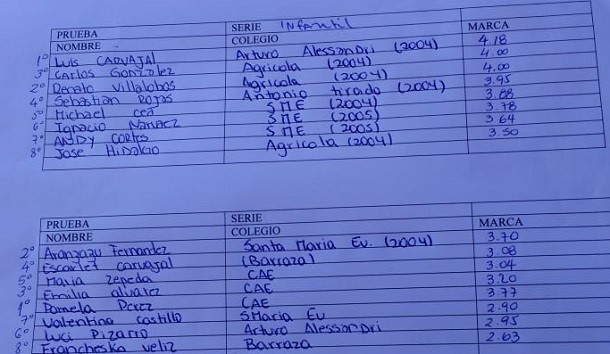 PRUEBA SERIE Infantil
NOMBRE COLEGIO MARCA
1° Luis CARVAJAL Arturo Alessandri (2004) 4.18
3° Carlos Gonzalez Agricola (2004) 4.00
2° Renato Villalobos Agricola (2004) 4.00
4° Sebastian Rojas Antonio tirado (2004) 3.95
5° Michael cea SME (2004) 3.88
6° Ignacio Narvaez SME (2005) 3.78
7° ANDY CORTES SME (2005) 3.64
8° Jose Hidalgo Agricola (2004) 3.50
PRUEBA SERIE
NOMBRE COLEGIO MARCA
2° Aranzazu Fernandez Santa Maria Eu. (2004) 3.70
4° Escarlet carvajal (Barraza) 3.08
5° Maria Zepeda CAE 3.04
3° Emilia alvarez CAE 3.20
1° Pamela Perez CAE 3.77
7° Valentina Castillo SMaria Eu 2.90
6° Luci Pizarro Arturo Alessandri 2.95
8° Francheska veliz Barraza 2.63